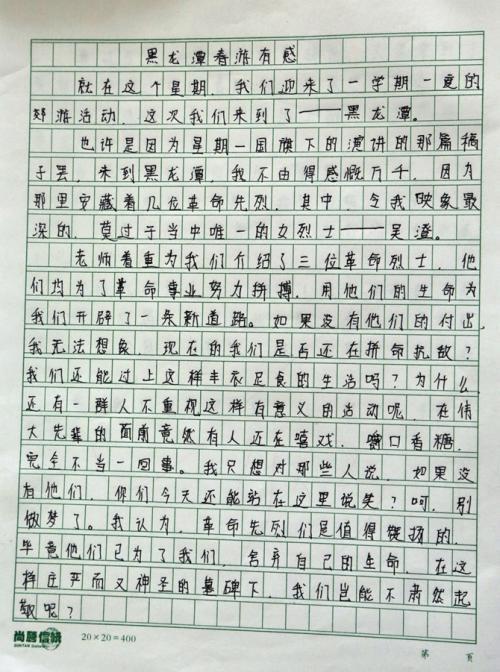 黑龙潭春游有感
就在这个星期，我们迎来了一学期一度的
郊游活动，这次我们来到了——黑龙潭。
也许是因为星期一国旗下的演讲的那篇稿
子罢，来到黑龙潭，我不由得感慨万千，因为
那里安藏着几位革命先烈，其中，令我映象最
深的，莫过于当中唯一的女烈士——吴澄。
老师着重为我们介绍了三位革命烈士，他
们均为了革命事业努力拼搏，用他们的生命为
我们开辟了一条新道路。如果没有他们的付出，
我无法想象，现在的我们是否还在拼命抗敌？
我们还能过上这样丰衣足食的生活吗？为什么
还有一群人不重视这样有意义的活动呢，在伟
大先辈的面前竟然有人还在嘻戏，嚼口香糖，
完全不当一回事。我只想对那些人说，如果没
有他们，你们今天还能站在这里说笑？呵，别
做梦了。我认为，革命先烈们是值得赞扬的，
毕竟他们已为了我们，舍弃自己的生命，在这
样庄严而又神圣的墓碑下，我们岂能不肃然起
敬呢？
尚慝信纸 20×20=400
第 页